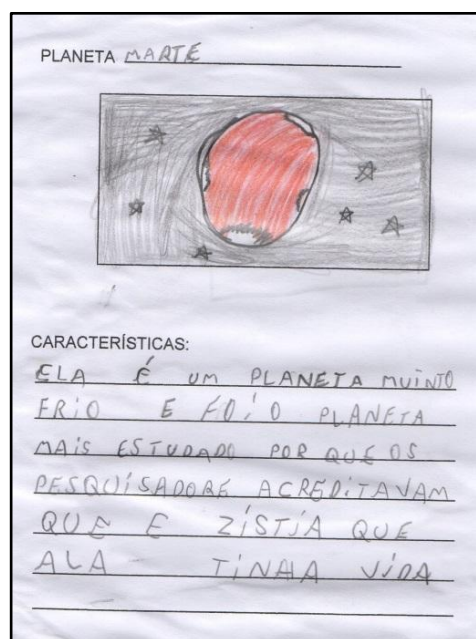 PLANETA MARTE
CARACTERÍSTICAS:
ELA É UM PLANETA MUINTO
FRIO E FOI O PLANETA
MAIS ESTUDADO POR QUE OS
PESQUISADORE ACREDITAVAM
QUE E ZISTIA QUE
ALA TINHA VIDA